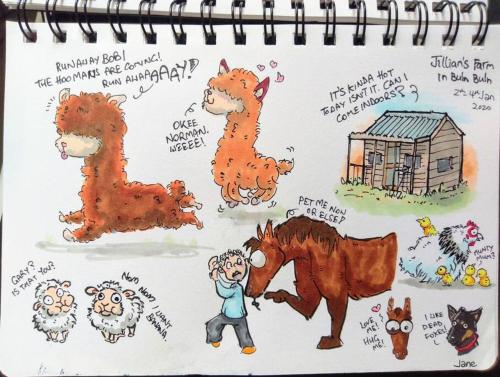 RUNAWAY BOB!
THE HOOMANS ARE COMING!
RUN AWAAAAAAY!
OKEE
NORMAN.
WEEEE!
IT'S KINDA HOT
TODAY ISN'T IT. CAN I
COME INDOORS??
Jillian's Farm
in Buln Buln
2nd-4th Jan
2020
GARY?
IS THAT YOU?
NOM NOM! I WANT
BANANA.
PET ME NOW
OR ELSE!
MUNTY
MUM?
LOVE
ME!
HUG
ME!
I LIKE
DEAD
FOXES!
Jane